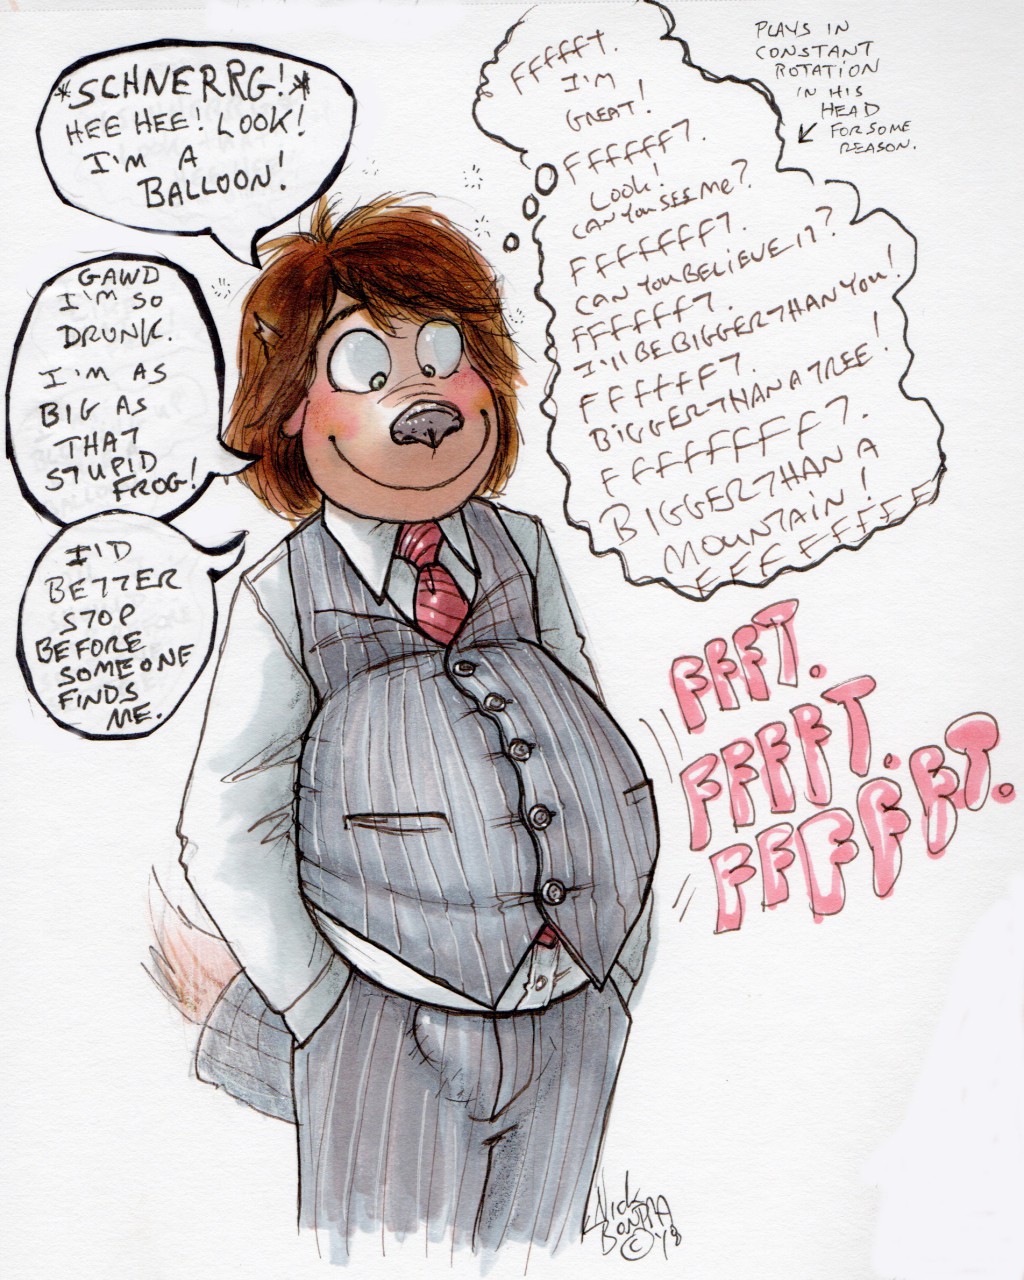 *SCHNERRG!*
HEE HEE! LOOK!
I'M A
BALLOON!
GAWD
I'M SO
DRUNK.
I'M AS
BIG AS
THAT
STUPID
FROG!
I'D
BETTER
STOP
BEFORE
SOMEONE
FINDS
ME.
FFFFFT.
I'M
GREAT!
FFFFFFT.
LOOK!
CAN YOU SEE ME?
FFFFFFFT.
CAN YOU BELIEVE IT?
FFFFFFT.
I'll BE BIGGER THAN YOU!
FFFFFFT.
BIGGER THAN A TREE!
FFFFFFFFT.
BIGGER THAN A
MOUNTAIN!
FFFFFFFFF
PLAYS IN
CONSTANT
ROTATION
IN HIS
HEAD
FOR SOME
REASON.
FFFT.
FFFFT.
FFFFFT.
Nick
BONPTA
©'48